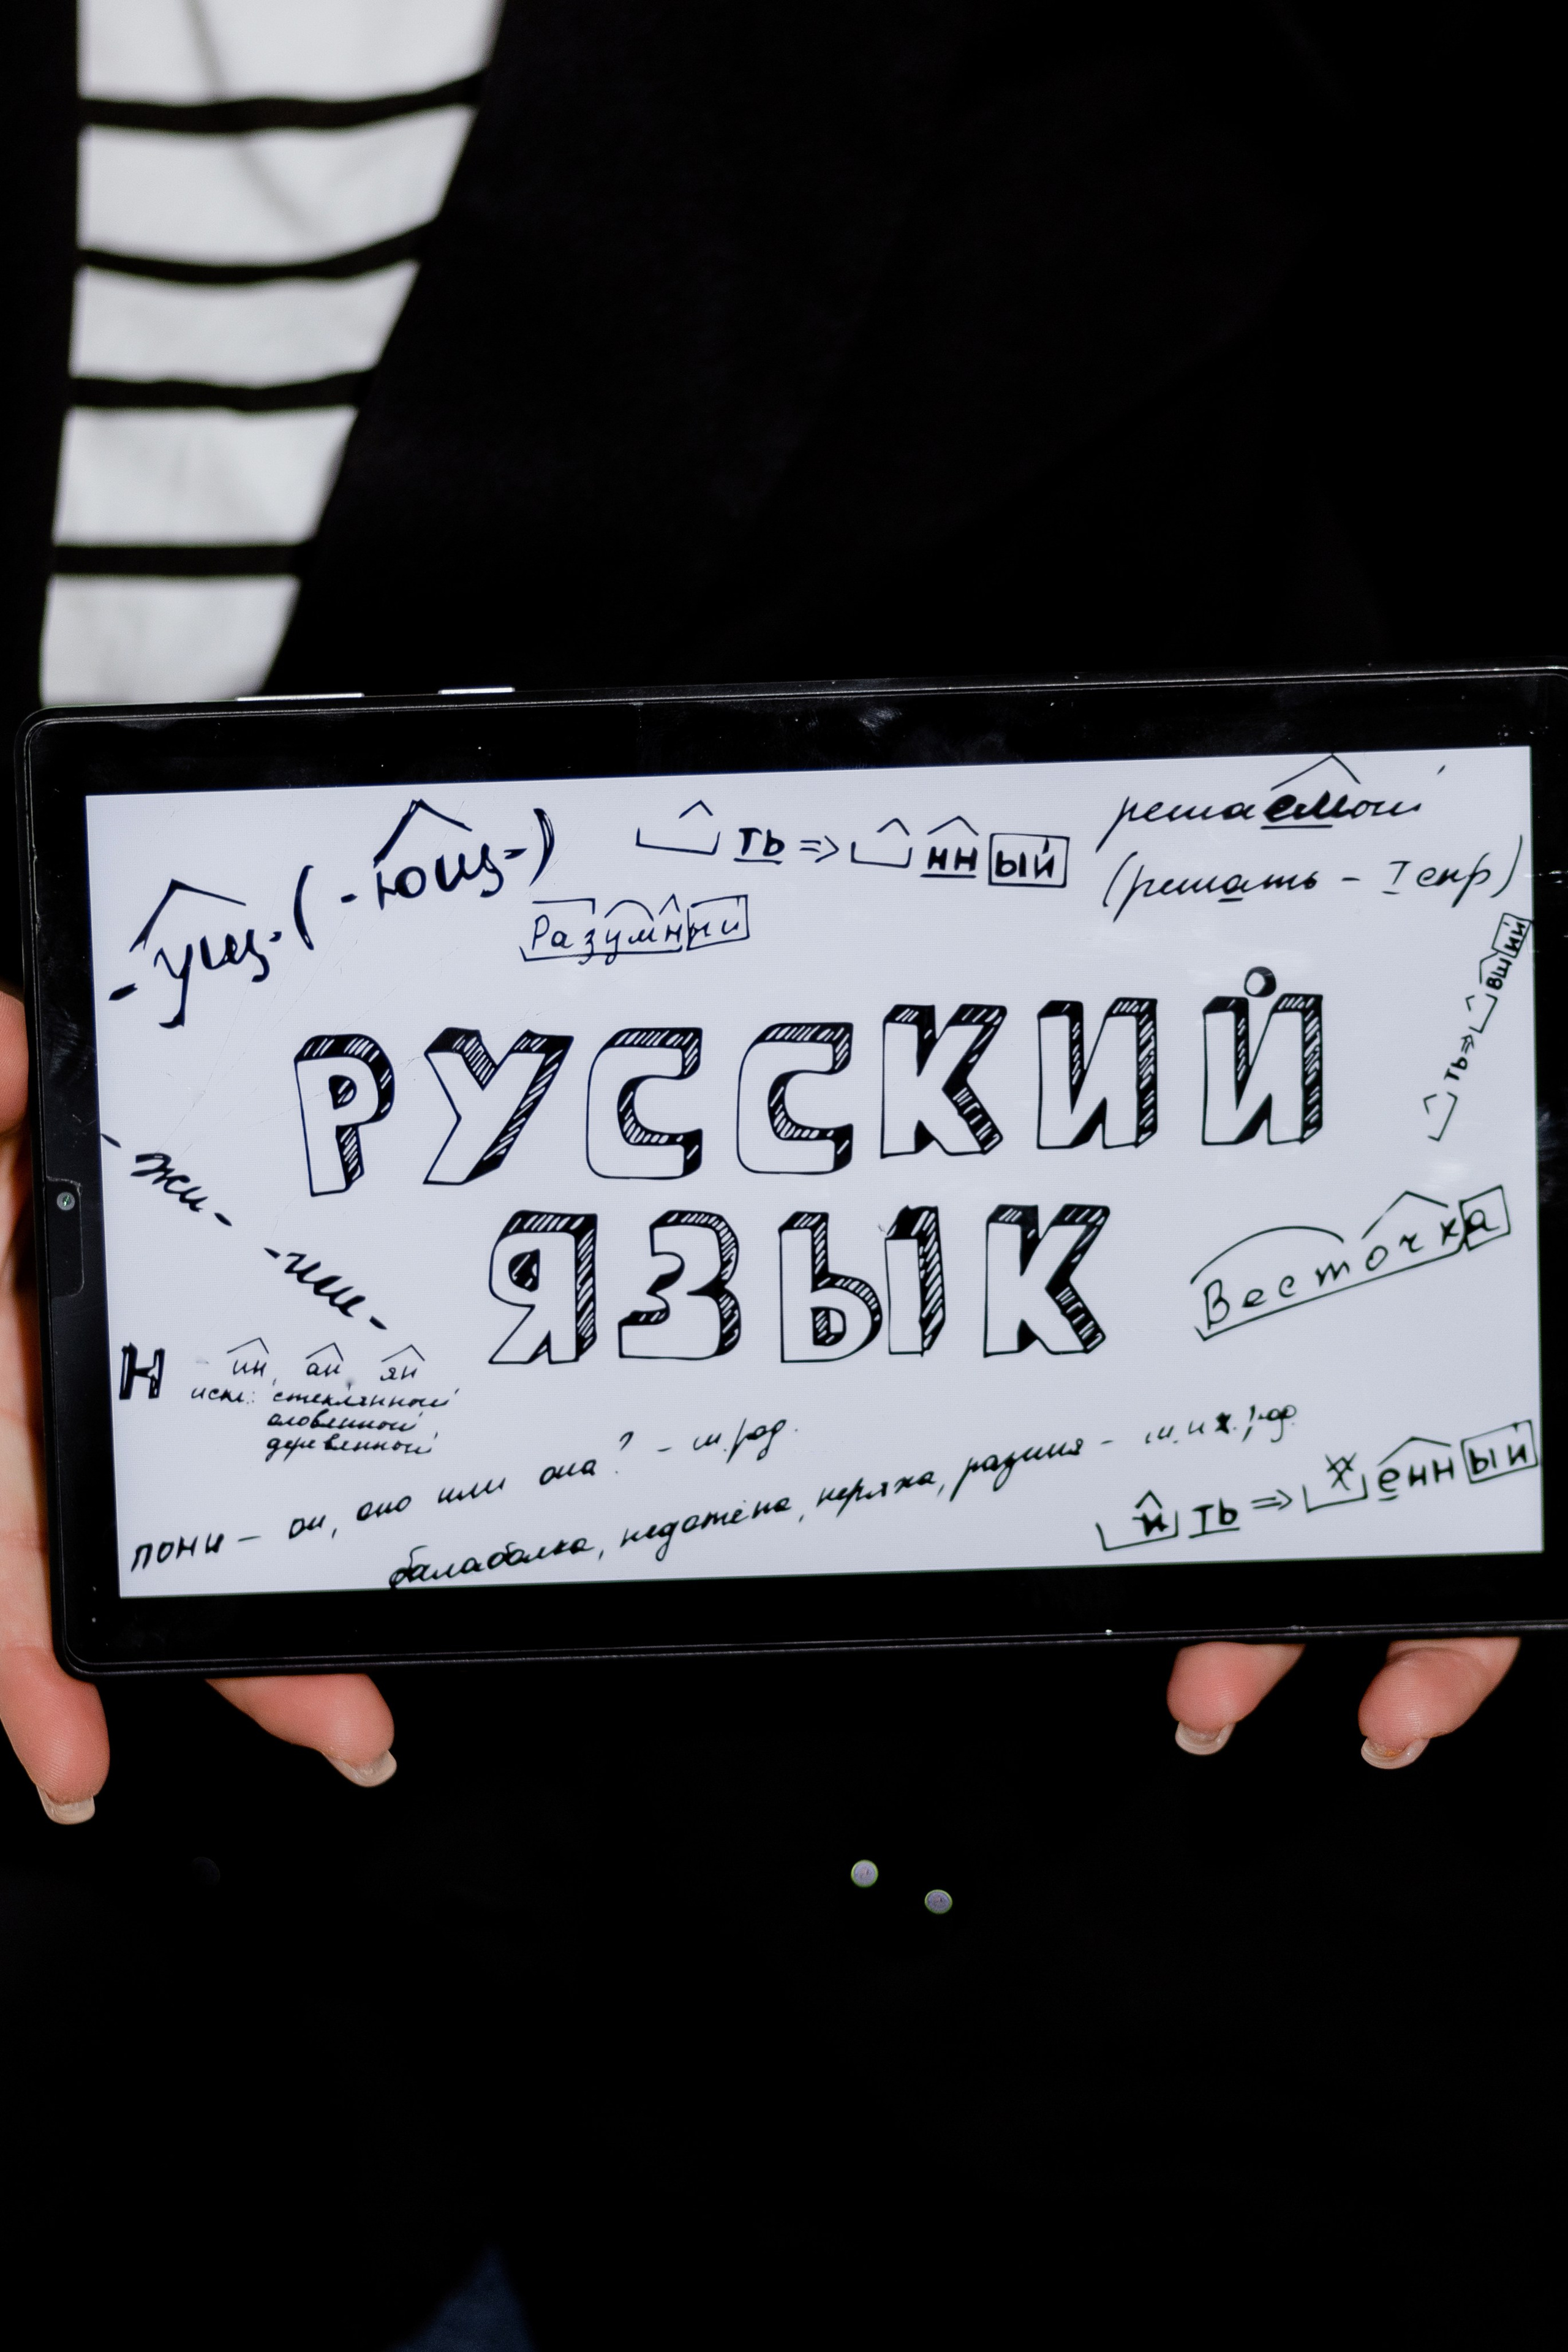 -ущ- (-ющ-)
ть => нный
решаемый
(решать - I спр)
Разумный
ть => вший
РУССКИЙ
ЯЗЫК
-жи-
-ши-
Весточка
Н - ин, ан, ян
искл: стеклянный
оловянный
деревянный
пони - он, оно или она? - м. род.
балаболка, недотёпа, неряха, разиня - м. и ж. род.
и ть => енный